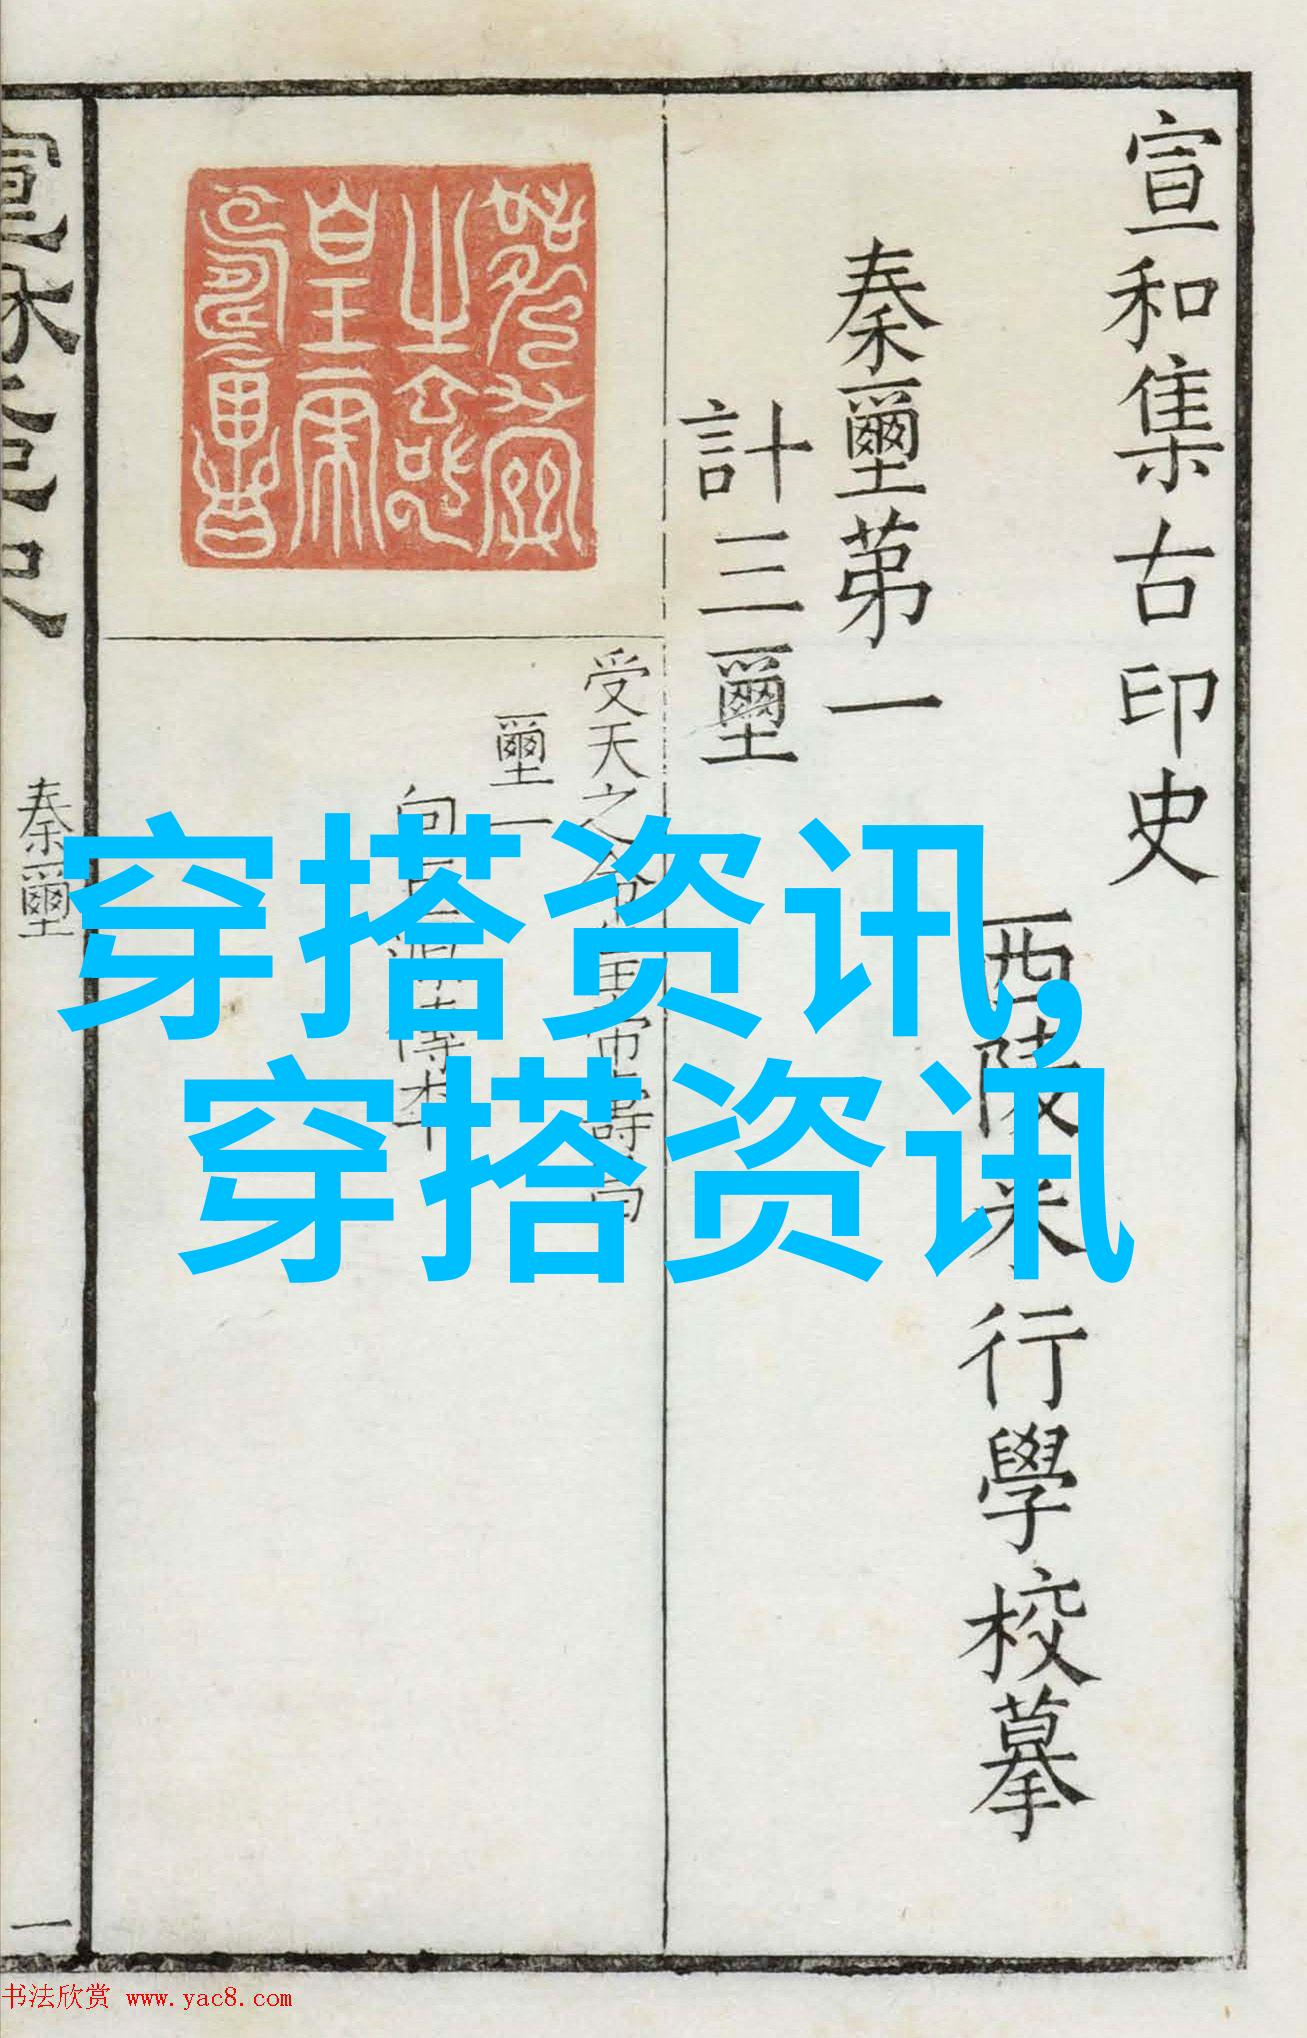 宣和集古印史
西陵来行學校摹
秦璽苐一
計三璽
受天之命皇帝壽
璽一
向巨源傳本
秦璽
一
穿搭资讯,
穿搭资讯
书法欣赏 www.yac8.com